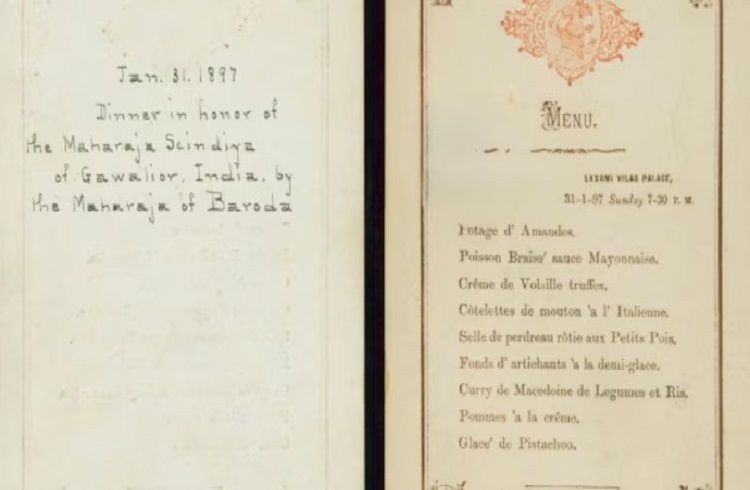 Jan. 31. 1897
Dinner in honor of
the Maharaja Scindiya
of Gawalior, India, by
the Maharaja of Baroda
MENU.
LUXMI VILAS PALACE,
31-1-97 Sunday 7-30 P. M.
Potage d' Amandes.
Poisson Braise' sauce Mayonnaise.
Crême de Volaille truffes.
Côtelettes de mouton 'a l' Italienne.
Selle de perdreau rôtie aux Petits Pois.
Fonds d' artichauts 'a la demi-glace.
Curry de Macedoine de Legumes et Ris.
Pommes 'a la crême.
Glace' de Pistachoo.